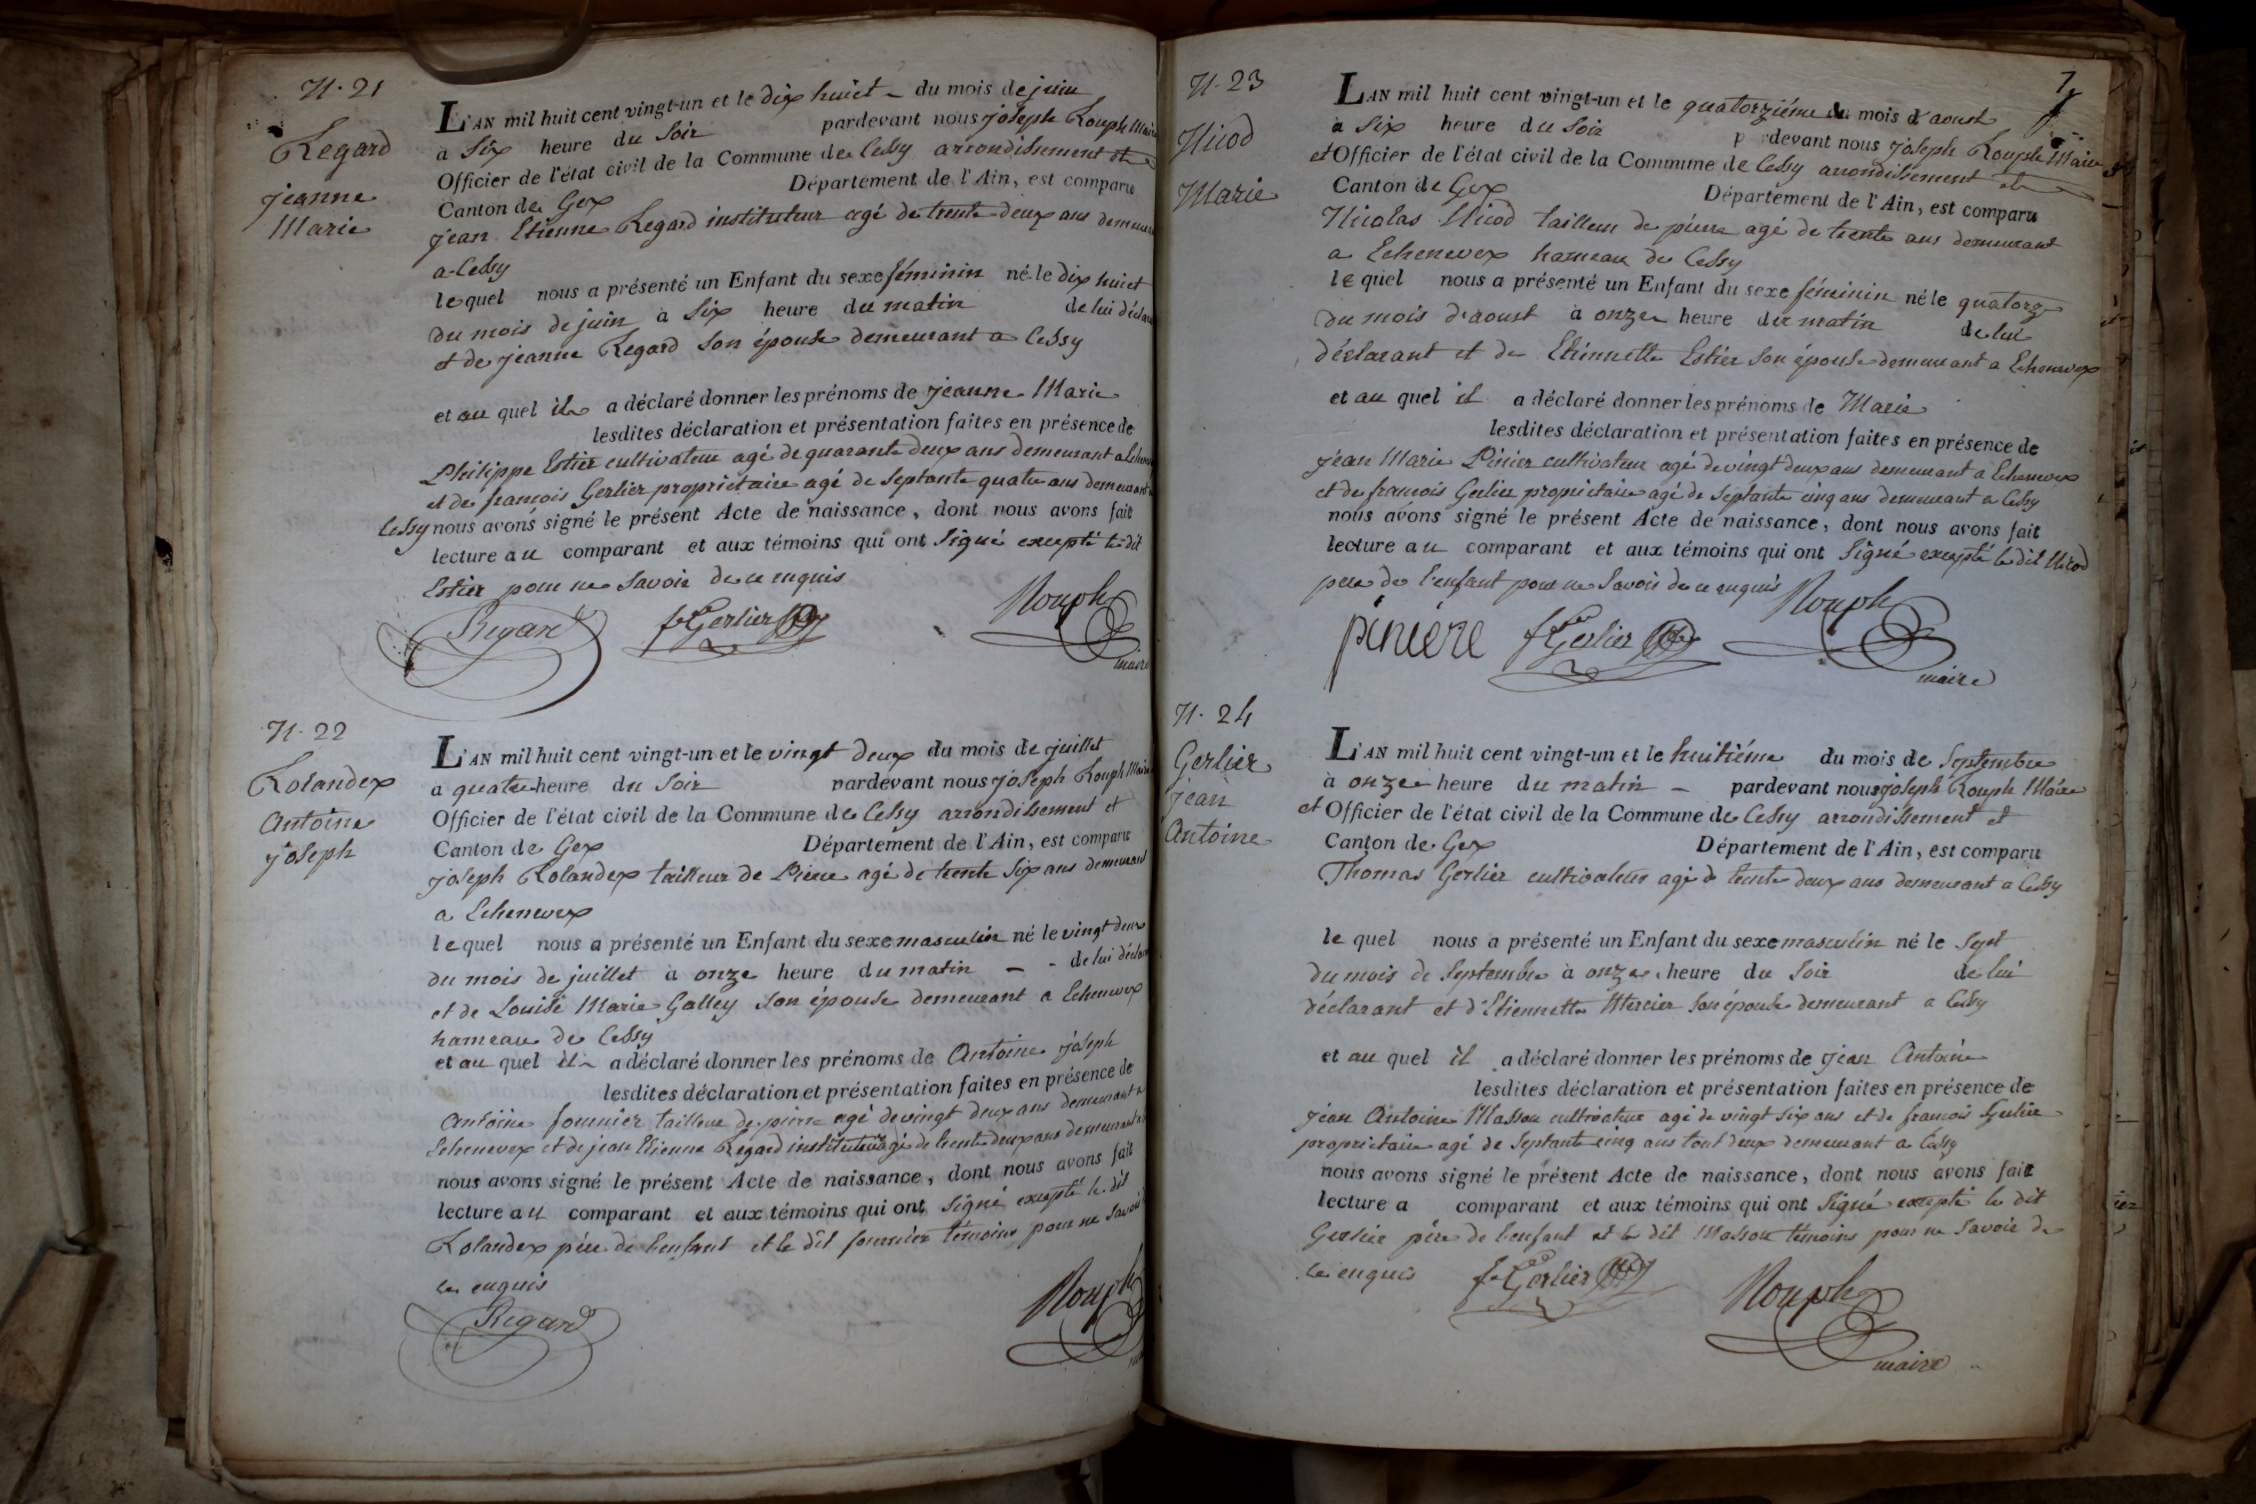 N. 21
Regard
jeanne
Marie
L'AN mil huit cent vingt-un et le dix huict du mois de juin
à Six heure du Soir pardevant nous joseph Rouph Maire
Officier de l'état civil de la Commune de Cessy arrondissement et
Canton de Gex Département de l'Ain, est comparu
jean Etienne Regard instituteur agé de trente deux ans demeurant
a Cessy
lequel nous a présenté un Enfant du sexe féminin né le dix huict
du mois de juin à Six heure du matin de lui déclarant
et de jeanne Regard son épouse demeurant a Cessy
et au quel il a déclaré donner les prénoms de jeanne Marie
lesdites déclaration et présentation faites en présence de
Philippe Estier cultivateur agé de quarante deux ans demeurant a Echenevex
et de francois Gerlier proprietaire agé de Septante quatre ans demeurant a
Cessy nous avons signé le présent Acte de naissance, dont nous avons fait
lecture au comparant et aux témoins qui ont Signé excepté le dit
Estier pour ne Savoir de ce enquis
Regard f. Gerlier Rouph
maire
N. 22
Rolandex
Antoine
joseph
L'AN mil huit cent vingt-un et le vingt deux du mois de juillet
à quatre heure du Soir pardevant nous joseph Rouph Maire
Officier de l'état civil de la Commune de Cessy arrondissement et
Canton de Gex Département de l'Ain, est comparu
joseph Rolandex tailleur de Pierre agé de trente Six ans demeurant
a Echenevex
lequel nous a présenté un Enfant du sexe masculin né le vingt deux
du mois de juillet à onze heure du matin de lui déclarant
et de Louise Marie Galley son épouse demeurant a Echenevex
hameau de Cessy
et au quel il a déclaré donner les prénoms de Antoine joseph
lesdites déclaration et présentation faites en présence de
Antoine fournier tailleur de pierre agé de vingt deux ans demeurant a
Echenevex et de jean Etienne Regard instituteur agé de trente deux ans demeurant a
nous avons signé le présent Acte de naissance, dont nous avons fait
lecture au comparant et aux témoins qui ont Signé excepté le dit
Rolandex père de l'enfant et le dit fournier témoins pour ne Savoir
ce enquis
Regard Rouph
N. 23
Nicod
Marie
7
L'AN mil huit cent vingt-un et le quatorziéme du mois d'aoust
à Six heure du Soir pardevant nous joseph Rouph Maire
et Officier de l'état civil de la Commune de Cessy arrondissement et
Canton de Gex Département de l'Ain, est comparu
Nicolas Nicod tailleur de pierre agé de trente ans demeurant
a Echenevex hameau de Cessy
lequel nous a présenté un Enfant du sexe féminin né le quatorze
du mois d'aoust à onze heure du matin de lui
déclarant et de Etiennette Estier son épouse demeurant a Echenevex
et au quel il a déclaré donner les prénoms de Marie
lesdites déclaration et présentation faites en présence de
jean Marie Pinier cultivateur agé de vingt deux ans demeurant a Echenevex
et de francois Gerlier proprietaire agé de Septante cinq ans demeurant a Cessy
nous avons signé le présent Acte de naissance, dont nous avons fait
lecture au comparant et aux témoins qui ont Signé excepté le dit Nicod
pere de l'enfant pour ne Savoir de ce enquis
piniére f. Gerlier Rouph
maire
N. 24
Gerlier
jean
Antoine
L'AN mil huit cent vingt-un et le huitiéme du mois de Septembre
à onze heure du matin pardevant nous joseph Rouph Maire
et Officier de l'état civil de la Commune de Cessy arrondissement et
Canton de Gex Département de l'Ain, est comparu
Thomas Gerlier cultivateur agé de trente deux ans demeurant a Cessy
lequel nous a présenté un Enfant du sexe masculin né le Sept
du mois de Septembre à onze heure du Soir de lui
déclarant et d'Etiennette Mercier Son épouse demeurant a Cessy
et au quel il a déclaré donner les prénoms de jean Antoine
lesdites déclaration et présentation faites en présence de
jean Antoine Masson cultivateur agé de vingt Six ans et de francois Gerlier
proprietaire agé de Septante cinq ans tout deux demeurant a Cessy
nous avons signé le présent Acte de naissance, dont nous avons fait
lecture a comparant et aux témoins qui ont Signé excepté le dit
Gerlier père de l'enfant et le dit Masson témoins pour ne Savoir de
ce enquis f. Gerlier Rouph
maire